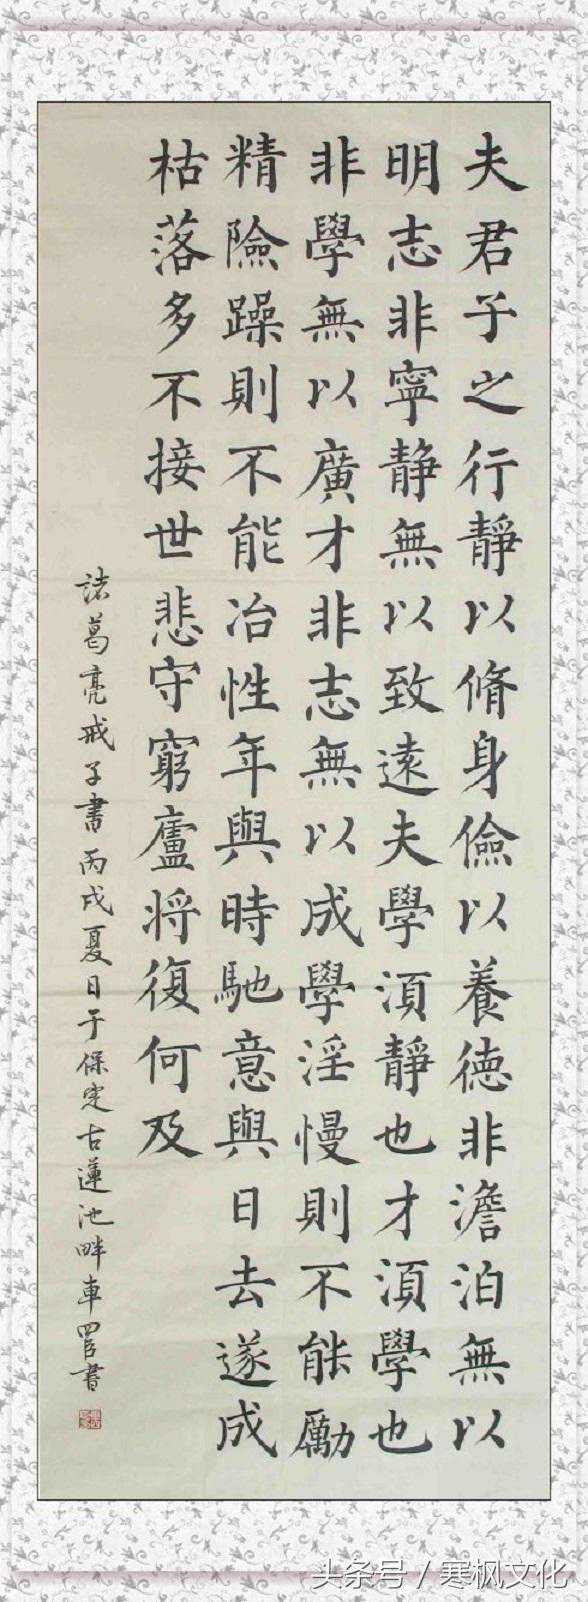 夫君子之行靜以脩身儉以養德非澹泊無以
明志非寧靜無以致遠夫學須靜也才須學也
非學無以廣才非志無以成學淫慢則不能勵
精險躁則不能冶性年與時馳意與日去遂成
枯落多不接世悲守窮廬将復何及
諸葛亮戒子書丙戌夏日于保定古蓮池畔車書
头条号 / 寒枫文化